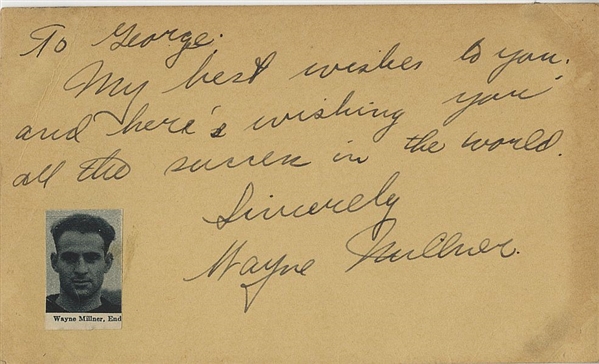 To George.
My best wishes to you.
and here's wishing you
all the success in the world.
Sincerely
Wayne Millner.
Wayne Millner, End